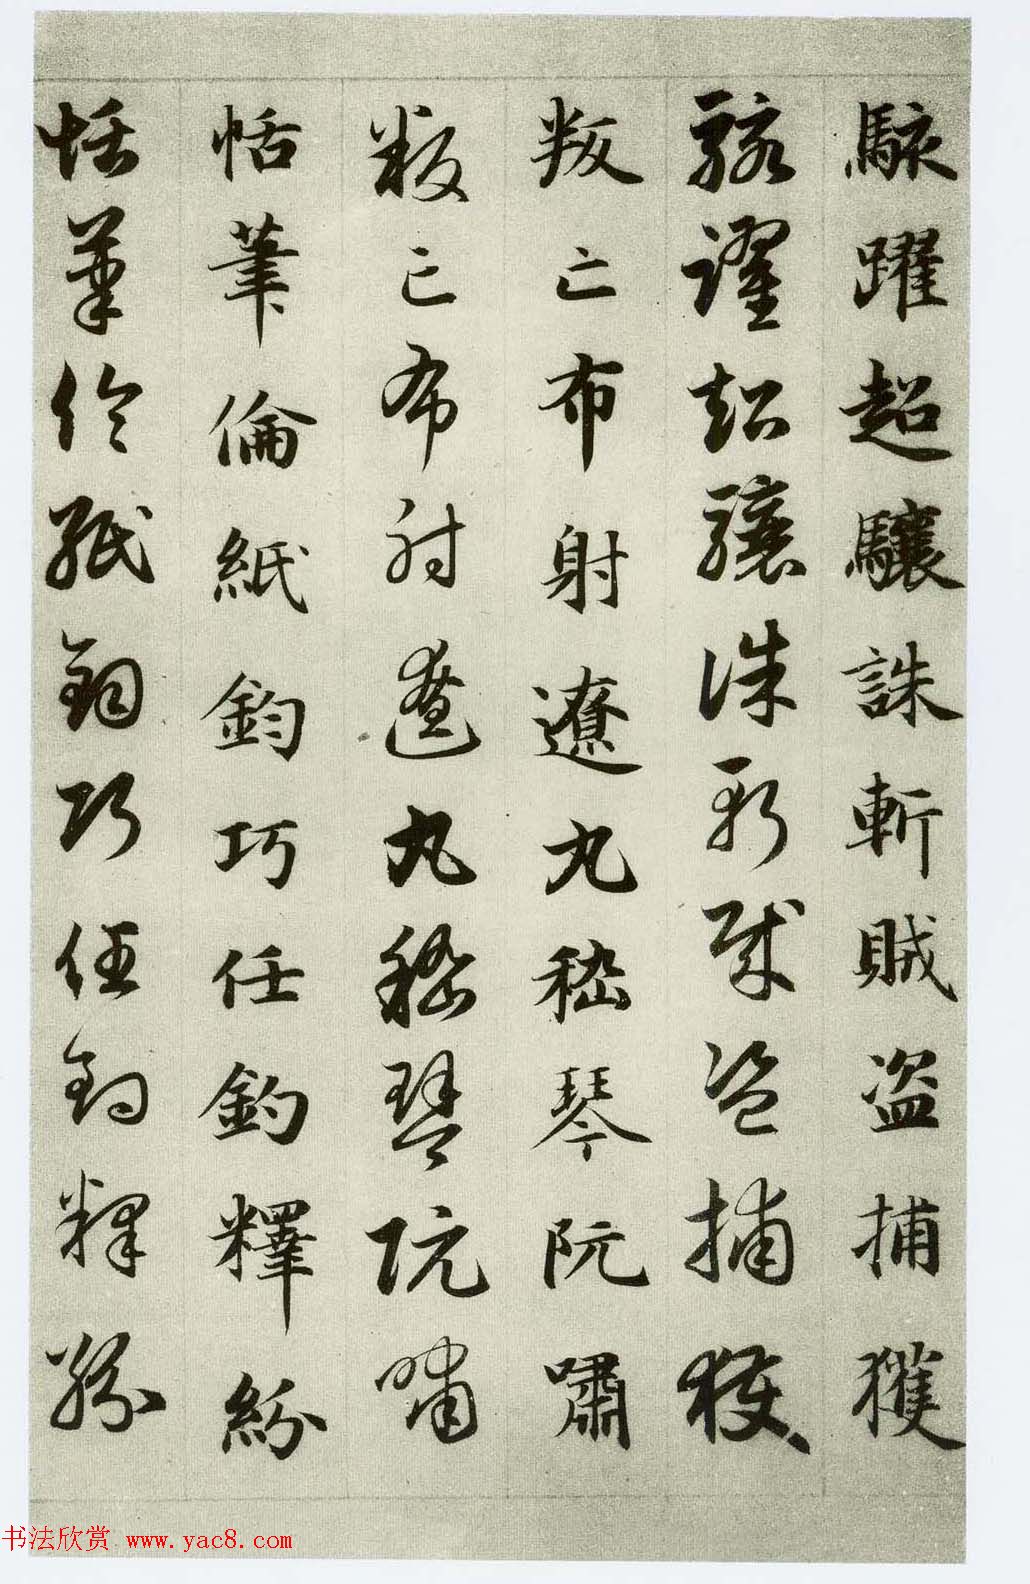 駭躍超驤誅斬賊盗捕獲
駭躍超驤誅斬賊盗捕獲
叛亡布射遼丸嵇琴阮嘯
叛亡布射遼丸嵇琴阮嘯
恬筆倫紙鈞巧任釣釋紛
恬筆倫紙鈞巧任釣釋紛
书法欣赏 www.yac8.com